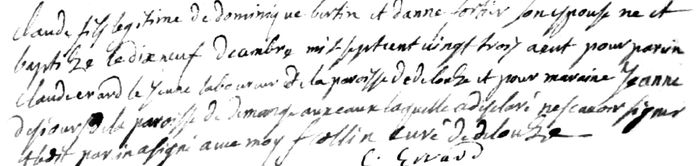 Claude fils legitime de dominique bertin et danne sortier son epouse ne et
baptize le dix neuf decambre mil sept cent vingt trois aeut pour parin
Claude erard le jeune laboureur de la paroisse de delouze et pour maraine Jeanne
de la paroisse de demange aux eaux laquelle a declaré ne scavoir signer
par in a signé avec moy f collin curé de delouze
C. Erard